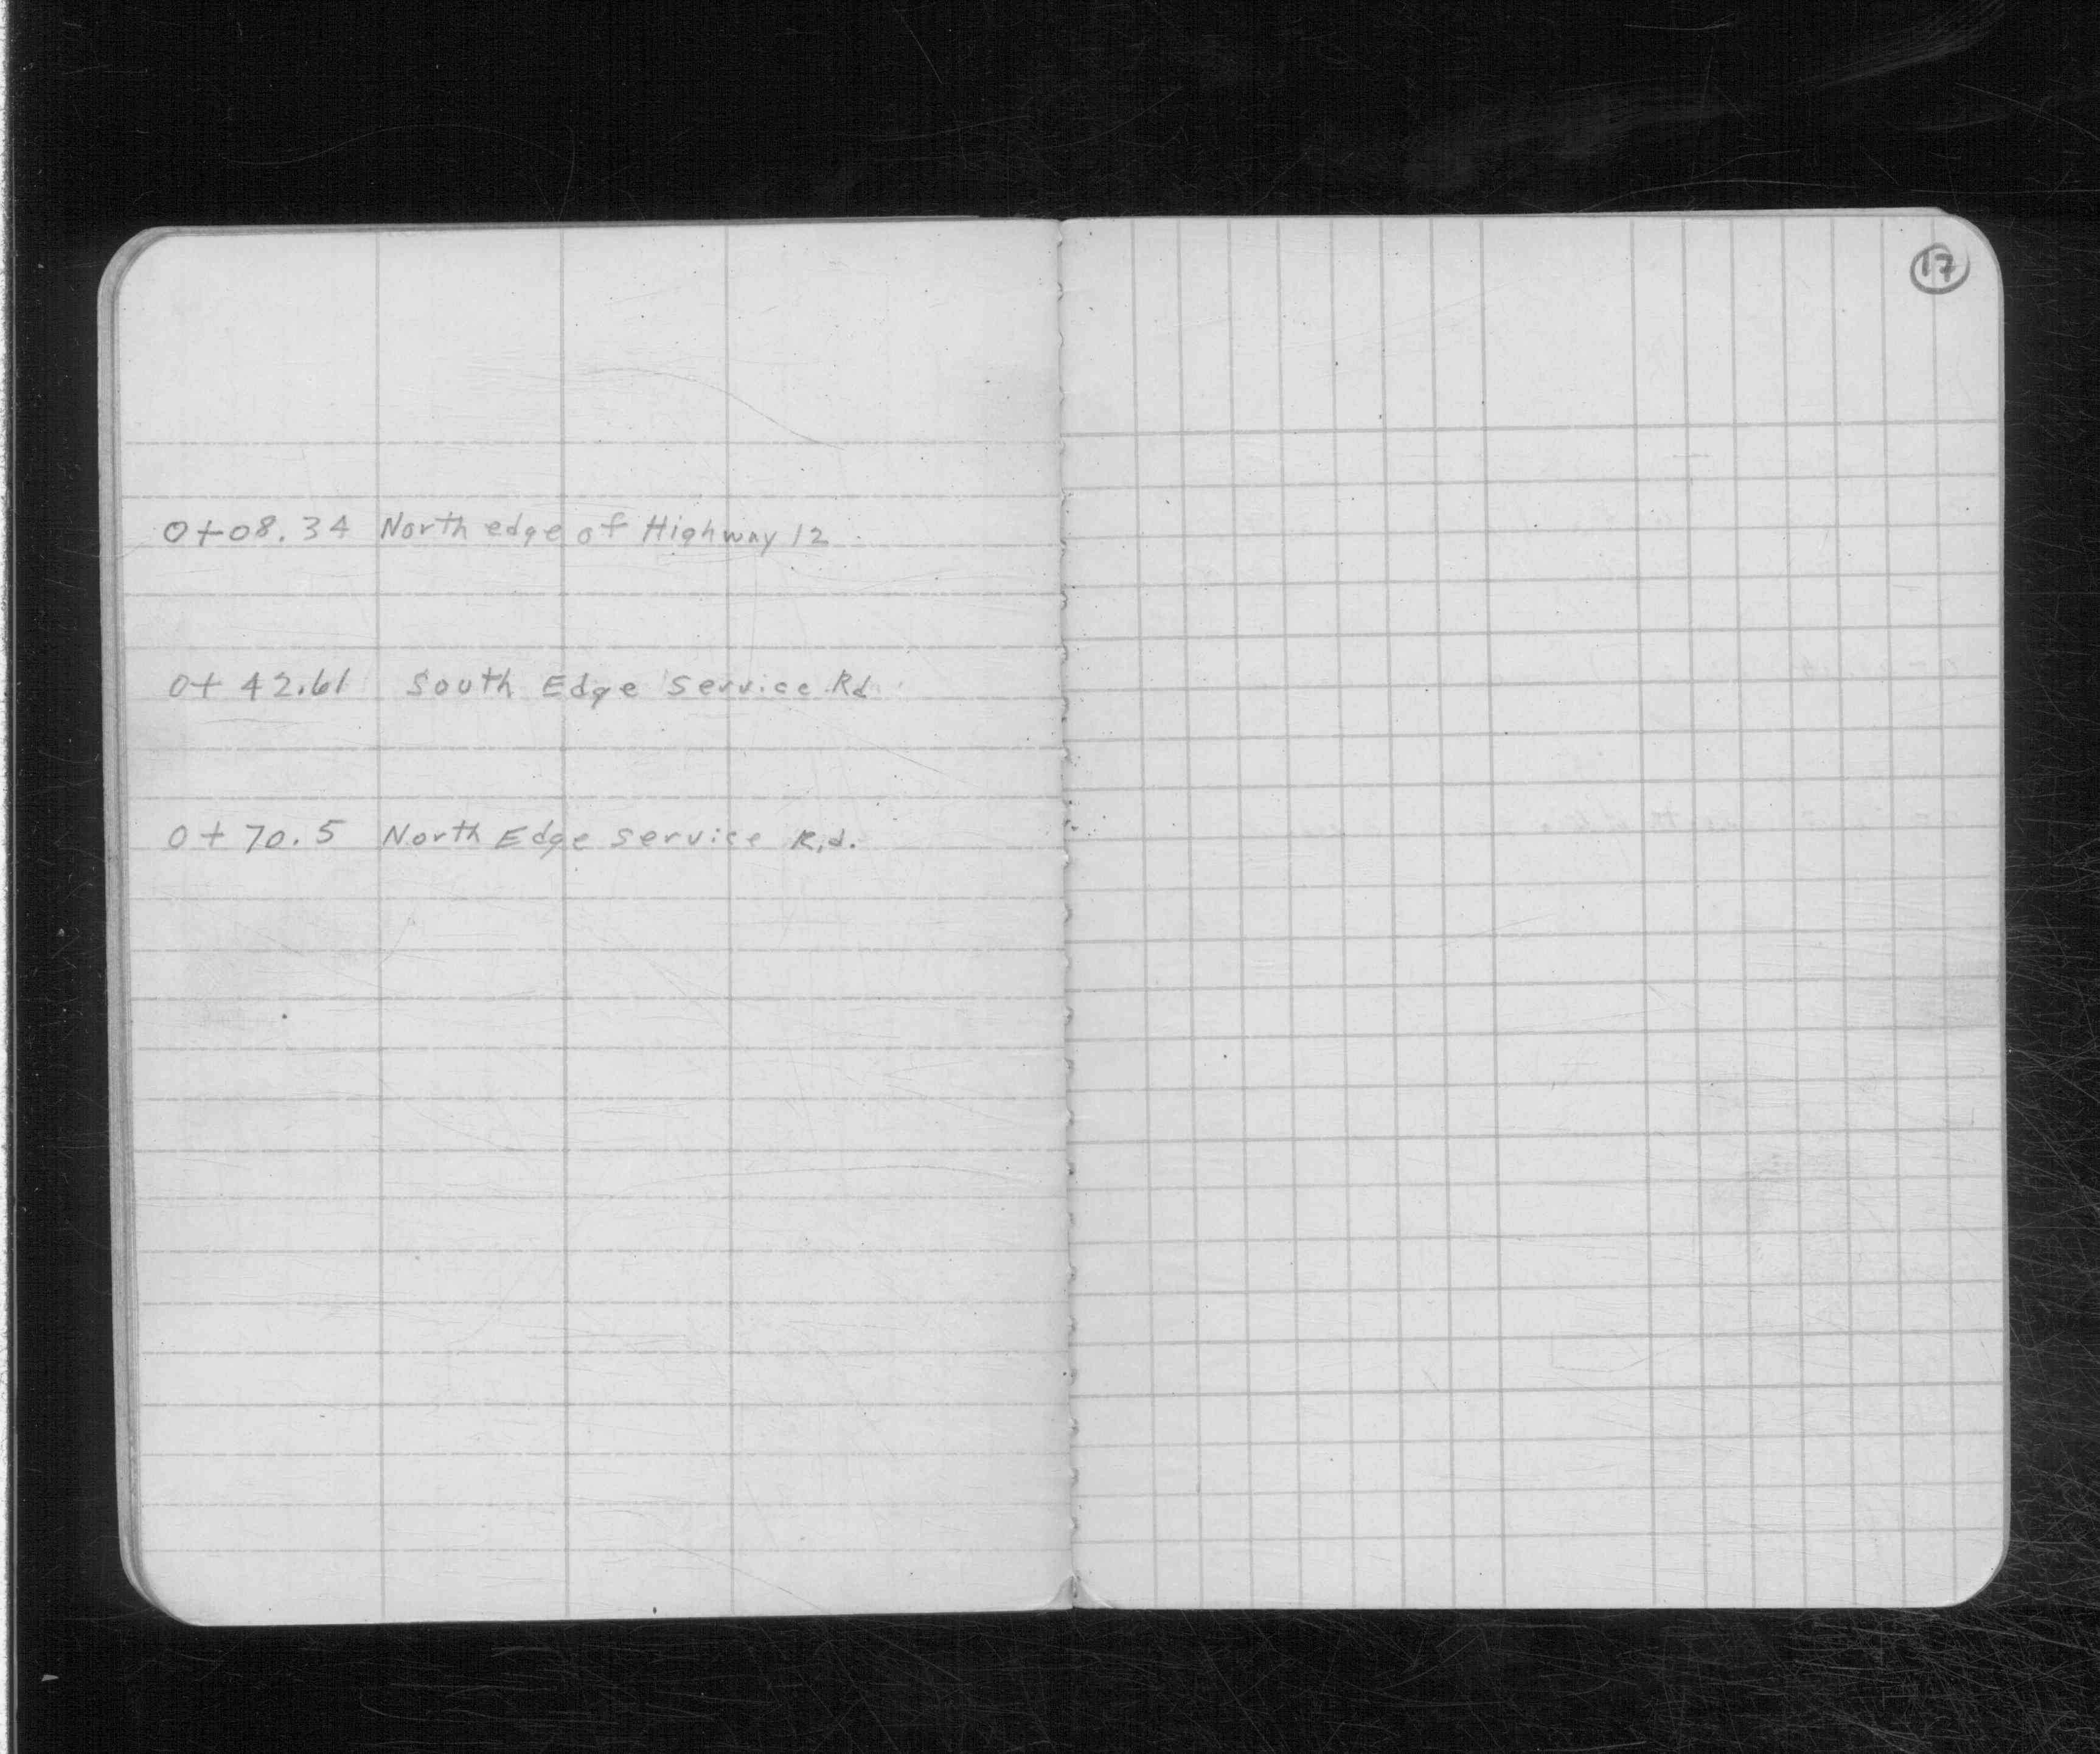 17
0+08.34 North edge of Highway 12
0+ 42.61 South Edge Service Rd
0+ 70.5 North Edge service Rd.